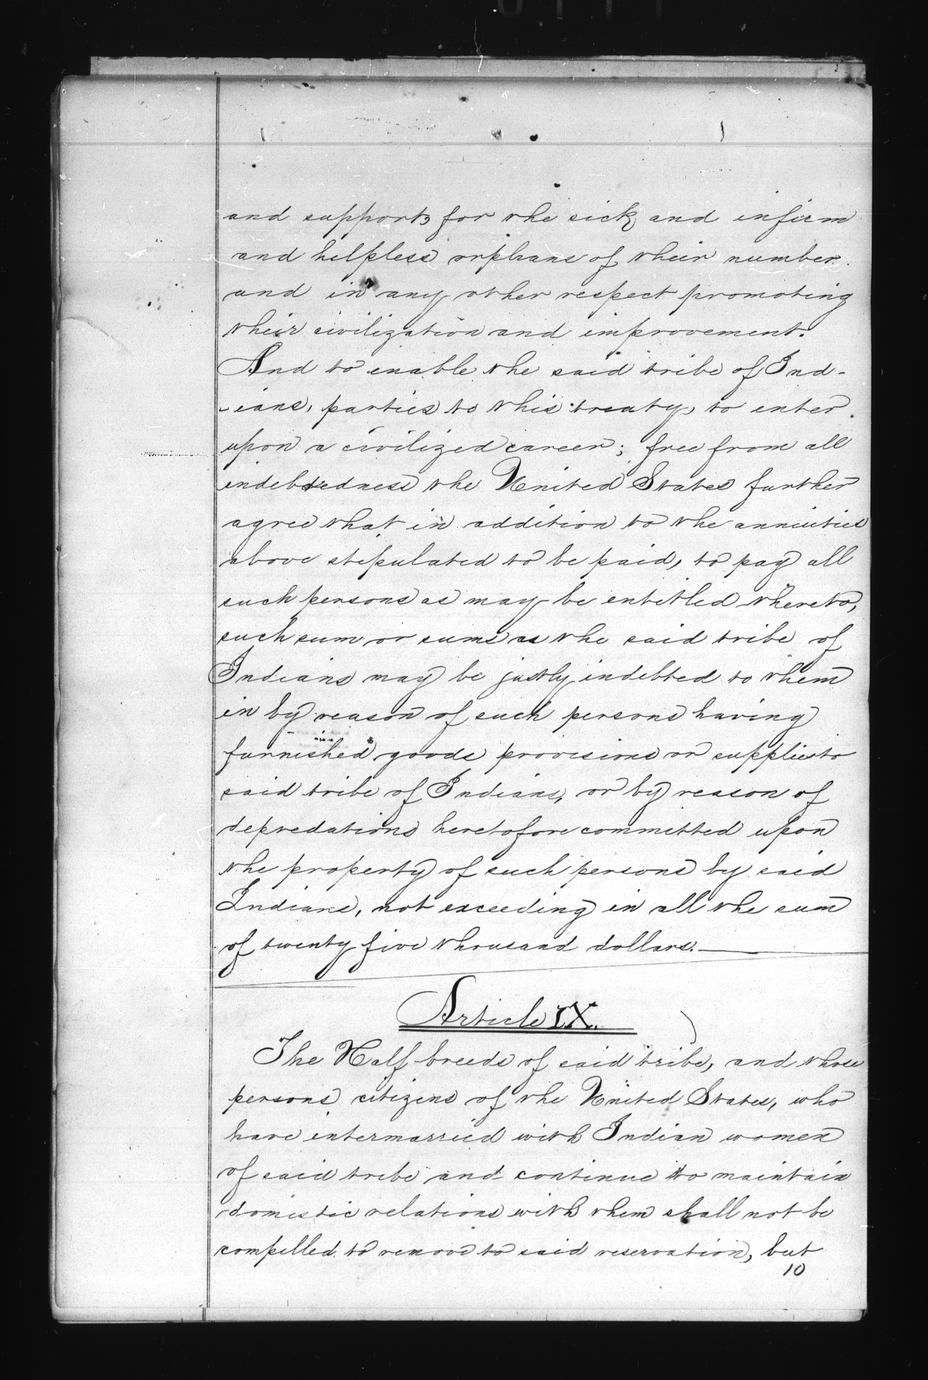 and support, for the sick, and infirm
and helpless orphans of their number.
and in any other respect promoting
their civilization and improvement.
And to enable the said tribe of Ind-
-ians, parties to this treaty, to enter
upon a civilized career; free from all
indebtedness the United States further
agree that in addition to the annuities
above stipulated to be paid, to pay all
such persons as may be entitled thereto,
such sum or sums as the said tribe of
Indians may be justly indebted to them
in by reason of such persons having
furnished goods provisions or supplies to
said tribe of Indians, or by reason of
depredations heretofore committed upon
the property of such persons by said
Indians, not exceeding in all the sum
of twenty five thousand dollars.—
Article IX.
The Half-breeds of said tribe, and those
persons citizens of the United States, who
have intermarried with Indian women
of said tribe and continue to maintain
domestic relations with them shall not be
compelled to remove to said reservation, but
10